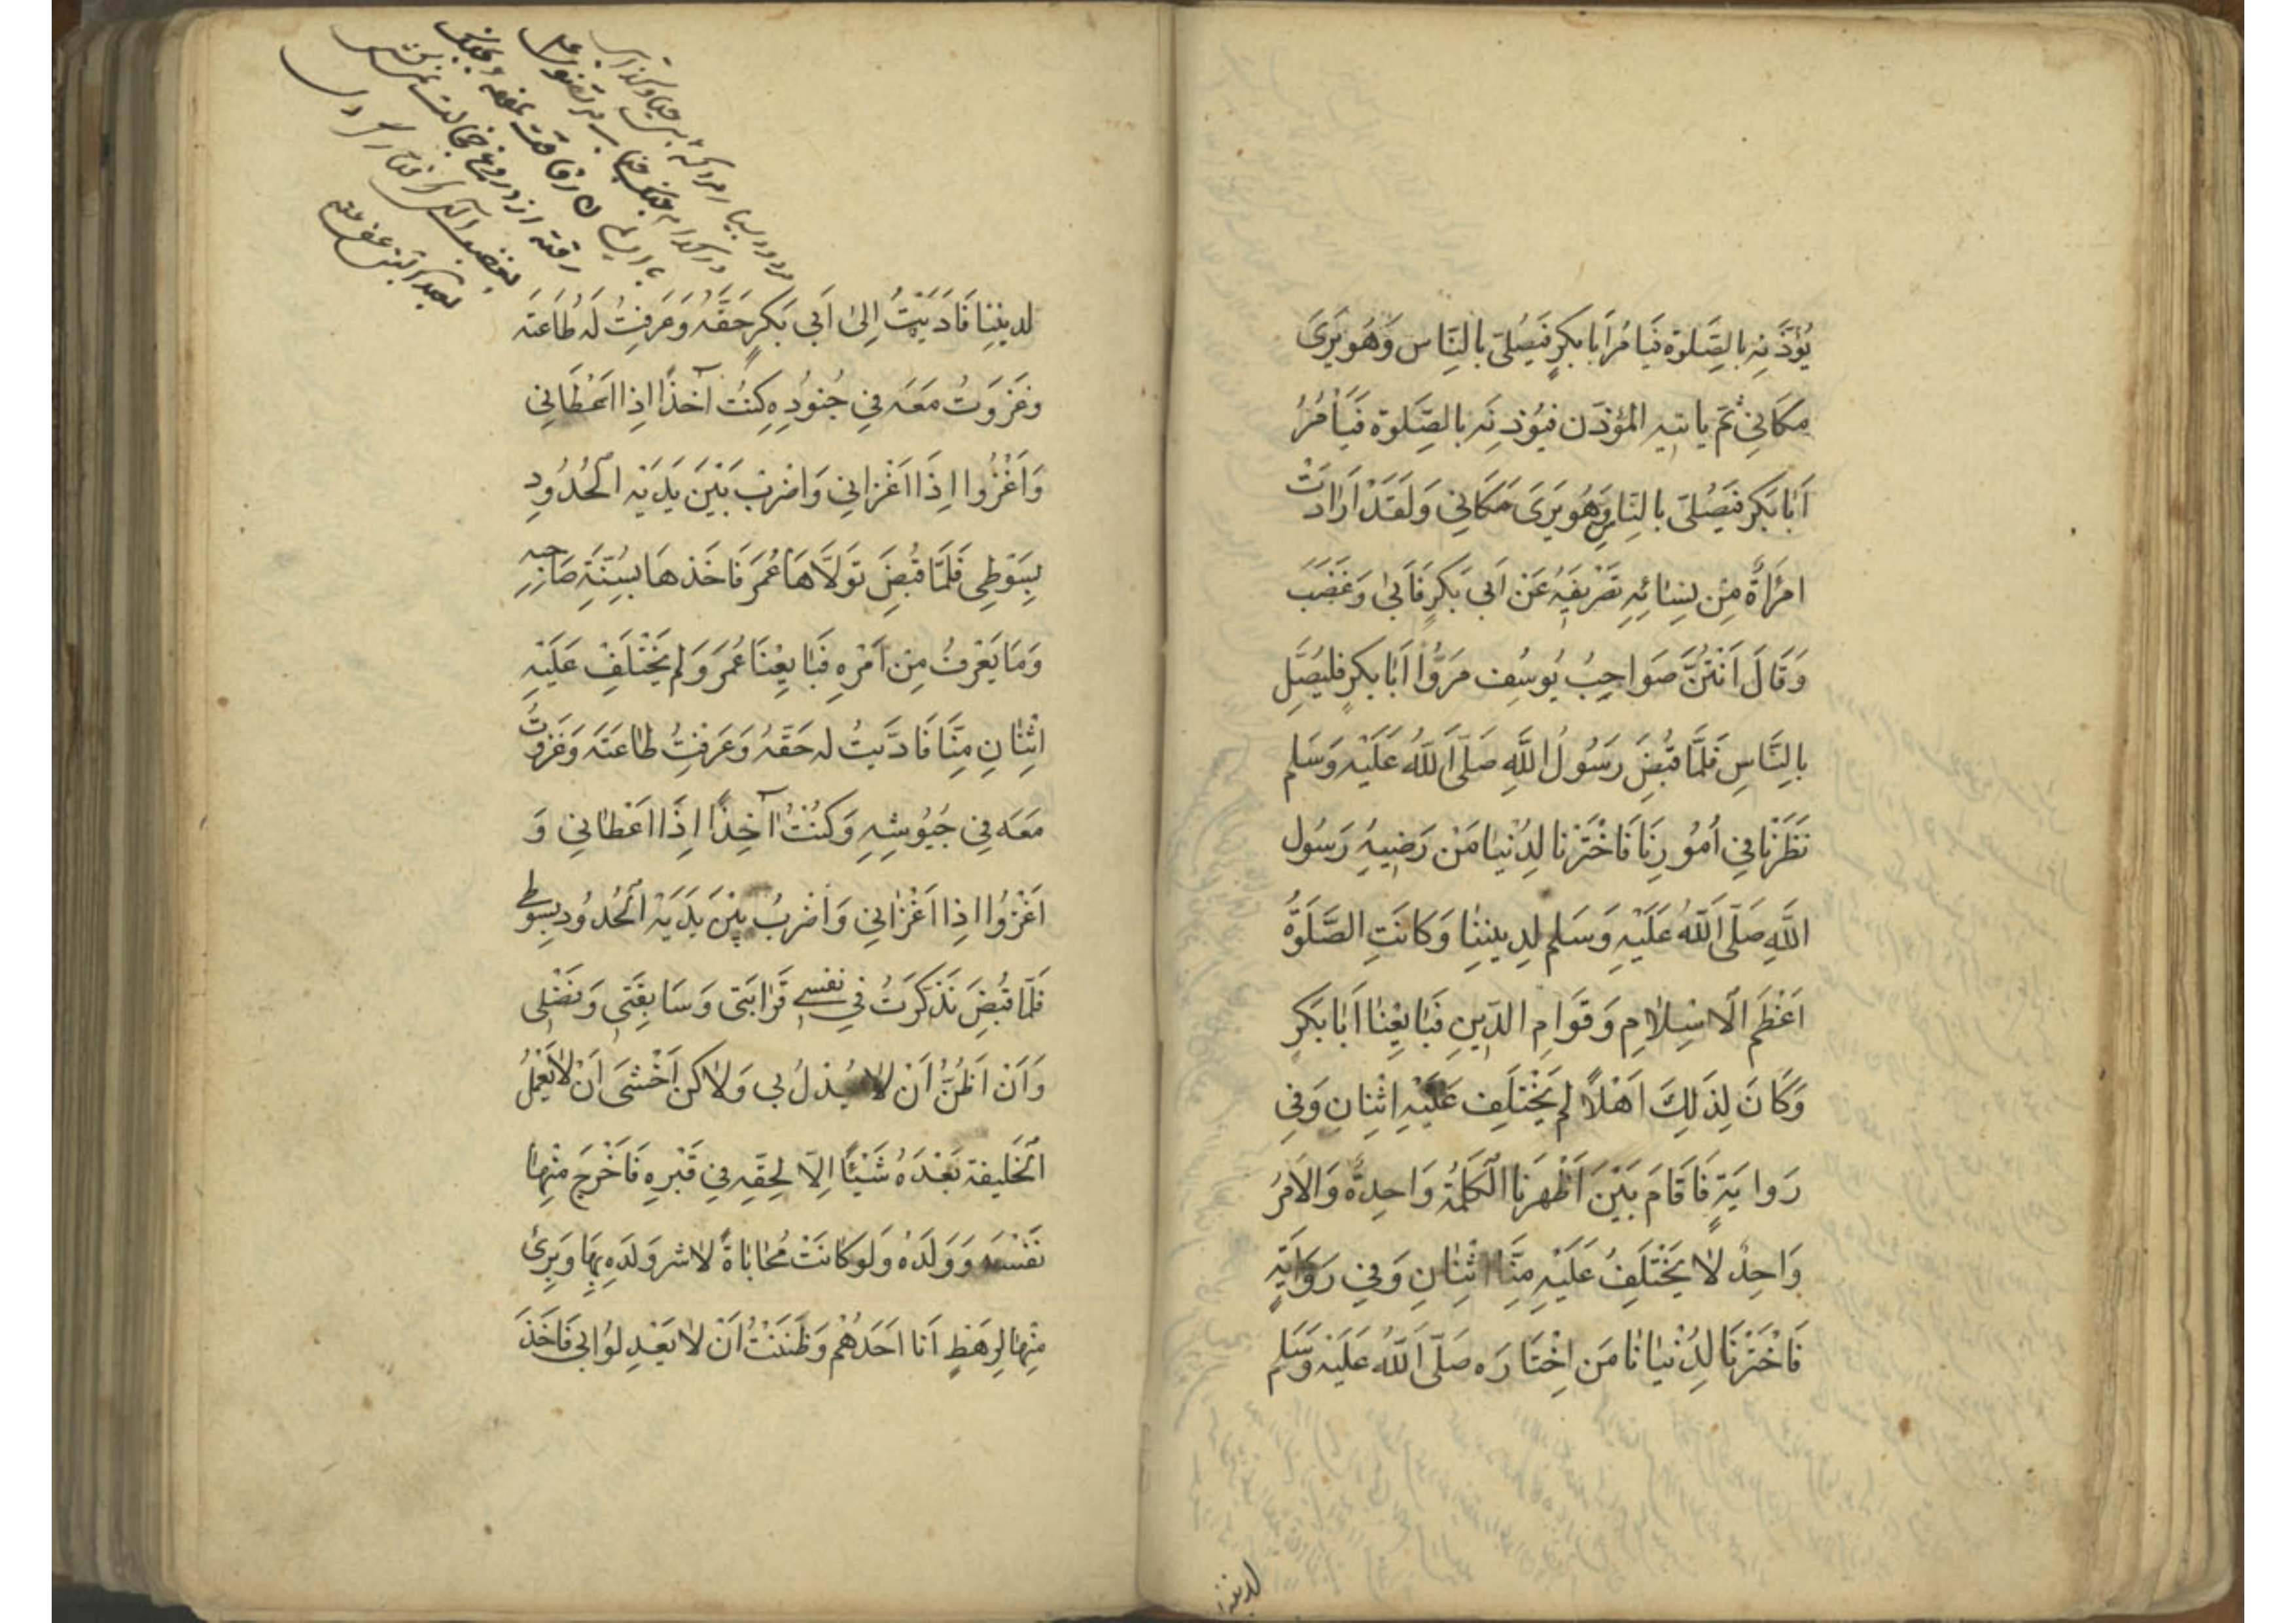 يُؤَذِّنُه بِالصَّلوة فَيَامُرُ اَبَا بَكرٍ فَيُصَلّى بِالنَّاس وَهُوَ يَرَىٰ
مَكَانِى ثُمَّ ياتيه المُؤَذّن فيُؤذِنُه بالصَّلوة فَيَأمُرُ
اَبَا بَكرٍ فَيُصَلّى بالنَّاسِ وَهُوَ يَرَىٰ مَكَانِى وَلَقَدْ اَرَادَتْ
امْرَاَةٌ مِن نِسَائِهِ تَصْرِيفَهُ عَنْ اَبى بَكرٍ فَاَبىٰ وَغَضِبَ
وَقَالَ اَنْتُنَّ صَوَاحِبُ يُوسُف مرُّوا اَبَا بكرٍ فليُصَلِّ
بالنَّاسِ فَلَمَّا قُبِضَ رَسُولُ اللهِ صَلَّى اللهُ عَلَيْهِ وَسَلم
نَظَرْنَا فِي اُمُورِنَا فَاخْتَرْنَا لِدُنْيَا مَنْ رَضِيَهُ رَسُول
اللهِ صَلَّى اللهُ عَلَيْهِ وَسَلم لِدِينِنَا وَكَانَتِ الصَّلوَةُ
اَعْظَم الاسْلامِ وَقَوَامِ الدّينِ فَبَايعْنَا اَبَا بَكرٍ
وَكَانَ لِذَلِكَ اَهْلاً لم يَخْتَلِف عَلَيْهِ اثْنَانِ وَفِي
رَوايَةٍ فَاَقَامَ بَيْنَ اَظْهَرِنَا الْكَلِمَةُ وَاحِدةٌ وَالاَمرُ
وَاحِدٌ لا يَخْتَلِفُ عَلَيْهِ مِنَّا اثْنَانِ وَفِي رَوَايَةٍ
فَاخْتَرْنَا لِدُنْيَانَا مَن اخْتَارَه صَلَّى اللهُ عَلَيْه وَسَلم
لديننا
لدِينِنا فَاَدَّيْتُ اِلىٰ اَبى بَكرٍ حَقَّهُ وَعَرَفتُ لَه طَاعَتَه
وغَزَوتُ مَعَهُ فِي جُنُودِهِ كنتُ آخذًا اِذا اعْطَانِي
وَاَغْزُوا اِذَا اَغْزانِي وَاضْرِبُ بَيْنَ يَدَيْه الحُدُودِ
بِسَوْطِى فَلَمَّا قُبِضَ تَوَلَّاهَا عُمَرَ فَاَخَذهَا بسُنَّةِ صَاحِبِهِ
وَمَا يَعْرِفُ مِنْ اَمْرِهِ فَبَايعْنَا عُمَرَ وَلم يَخْتَلِفْ عَلَيْهِ
اثْنَانِ مِنَّا فَادَّيتُ له حَقّهُ وَعَرَفتُ طاعَتَه وَغَزَوتُ
مَعَه فِي جُيُوشِهِ وَكنْتُ آخِذًا اِذَا اَعْطَانِي وَ
اَغْزُوا اِذا اَغْزَانِي وَاَضْربُ بَيْنَ يَدَيْه الْحُدُود بِسَوطى
فَلمَّا قُبِضَ تَذَكَّرَتُ فِي نَفْسِى قَرَابَتى وَسَابِقَتى وَفَضْلى
وَاَنْ اَظُنُّ اَنْ لا يُعْدِلُ بى وَلاكن اَخْشَى اَنْ لا يَعْمَلُ
الْخَليفة بَعْدَهُ شَيْئًا اِلّا لَحِقَه فِي قَبْرِهِ فَاَخْرَجَ مِنْها
نَفْسَهُ وَوَلَدَهُ وَلَو كَانَتْ مُحَابَاةً لاشر وَلَدَهِ بِهَا وَبَرِئ
مِنْها لِرهَطٍ اَنا اَحَدُهُم وَظَنَنْتُ اَنْ لا يَعْدِلوا بى فَاَخَذَ